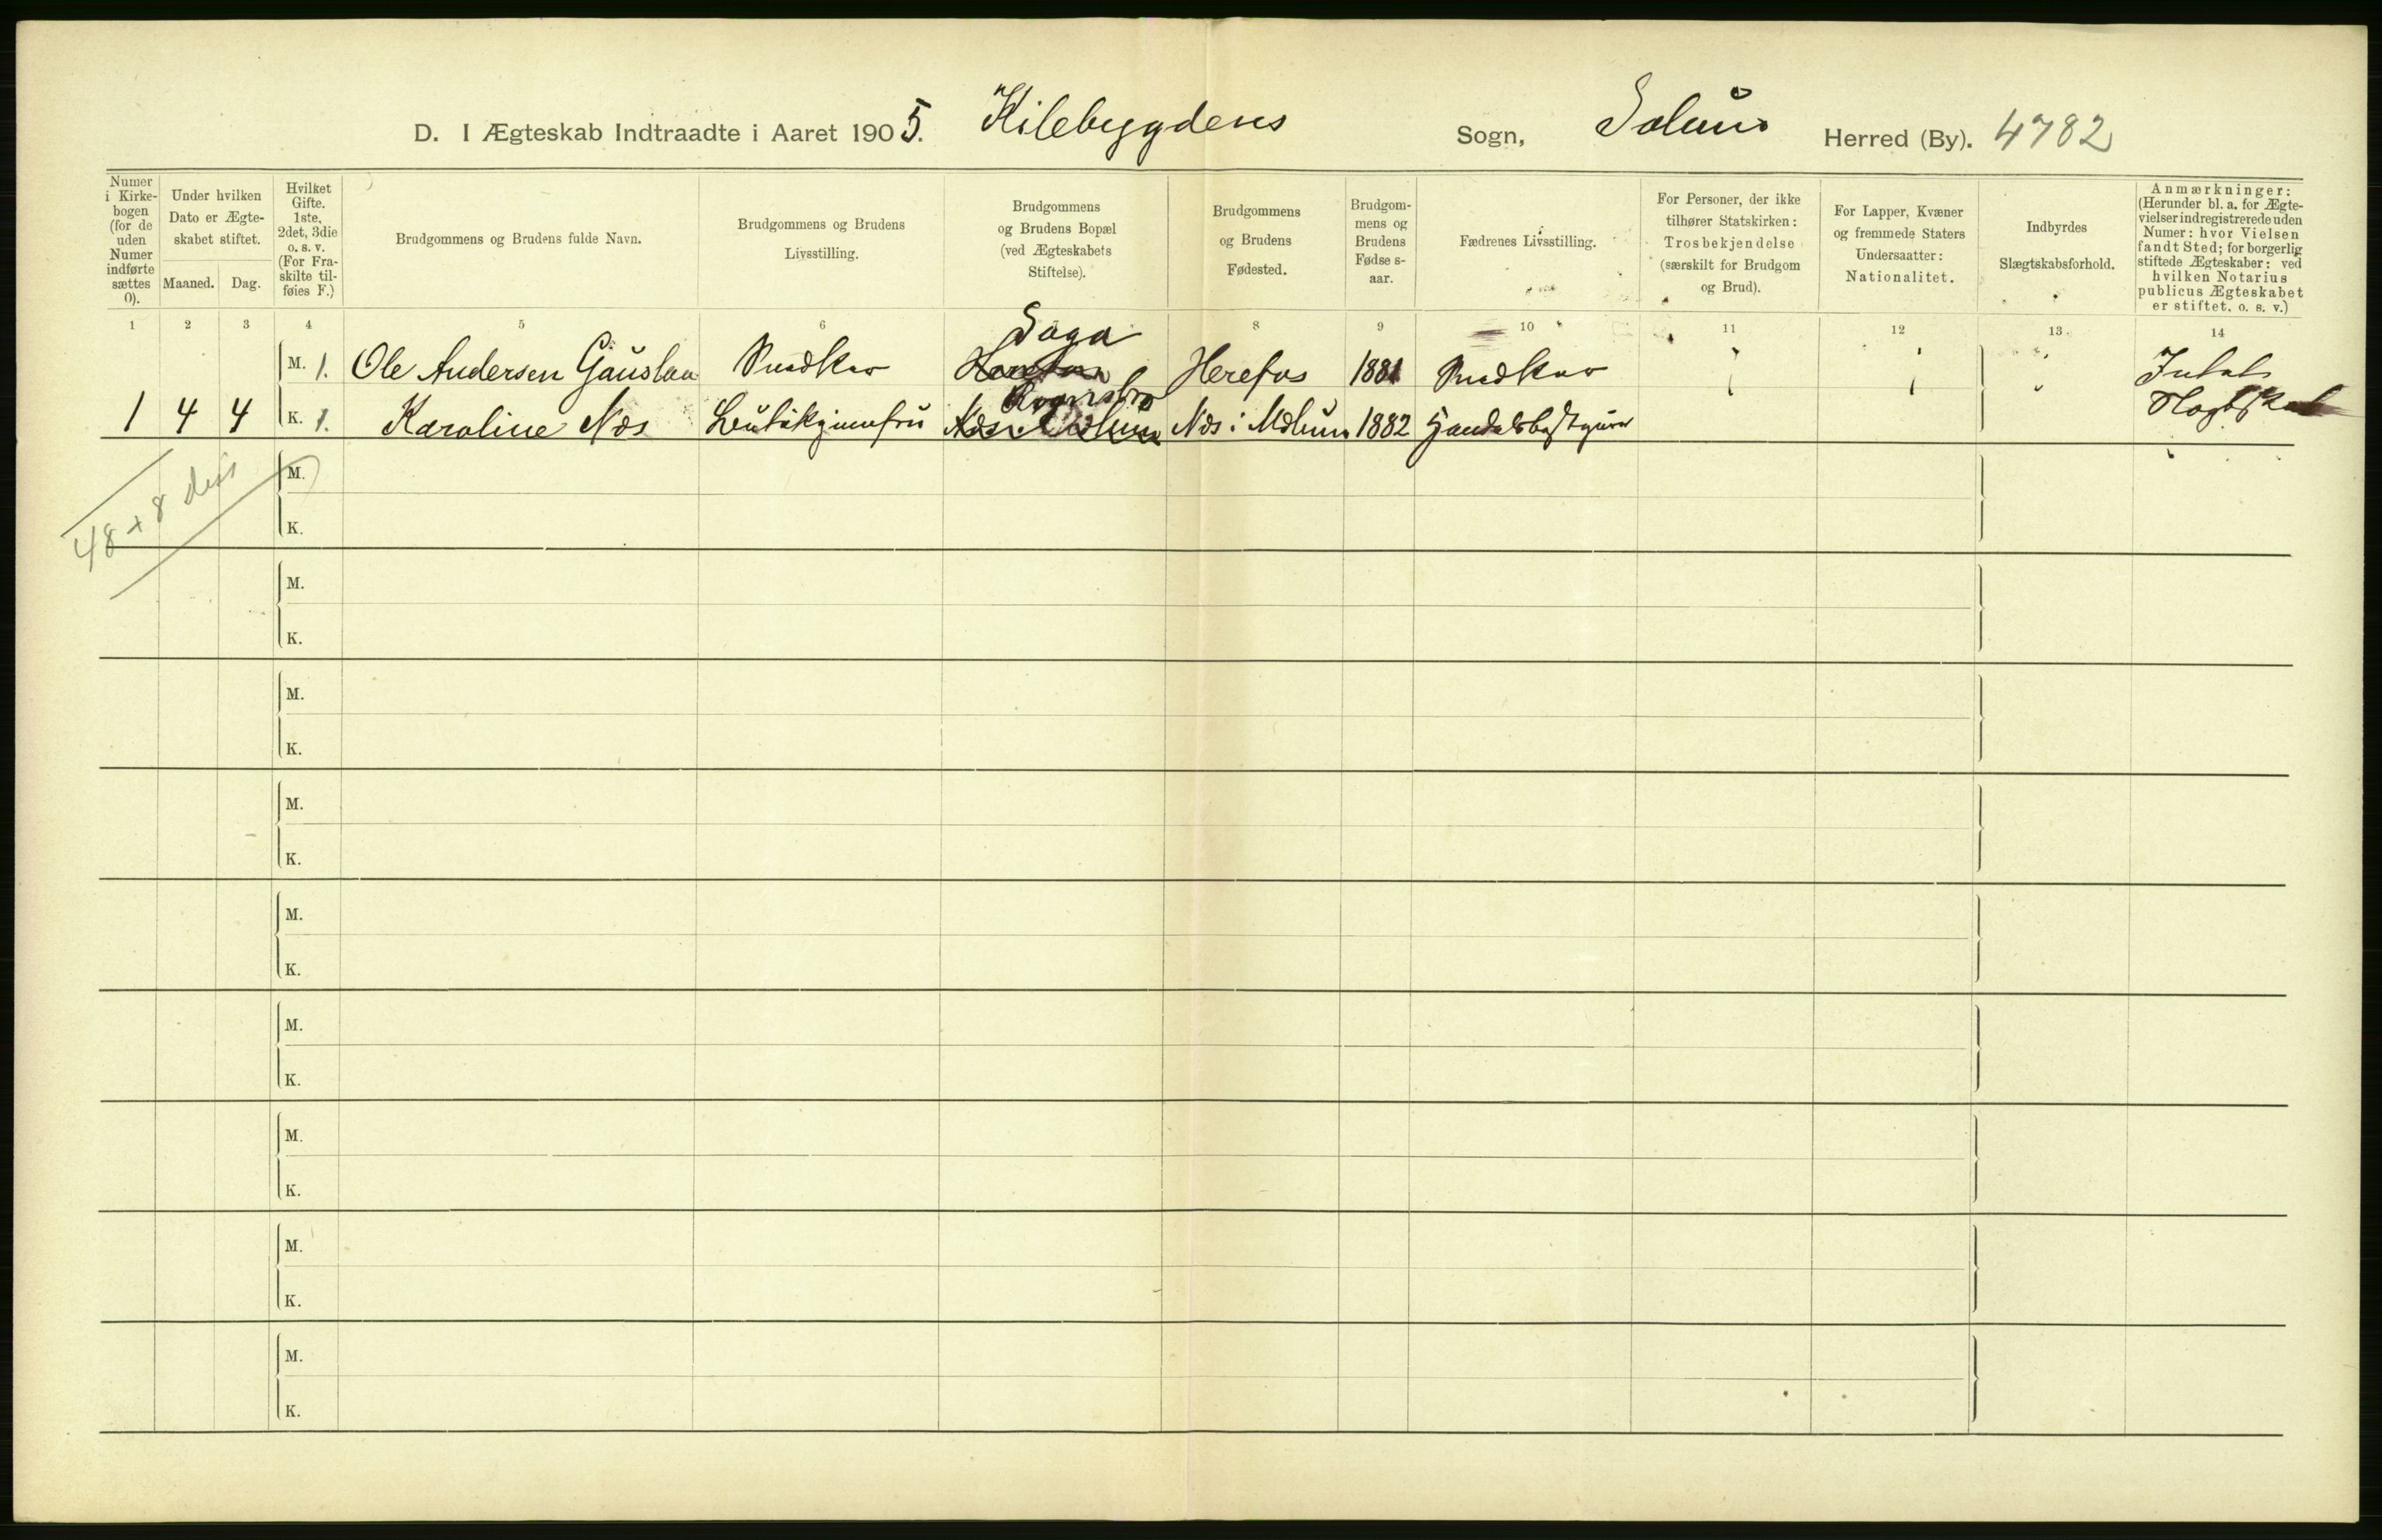 D. I Ægteskab Indtraadte i Aaret 1905. Kilebygdens Sogn, Solum Herred (By). 4782
Numer i Kirkebogen (for de uden Numer indførte sættes 0).
Under hvilken Dato er Ægteskabet stiftet.
Maaned. Dag.
Hvilket Gifte. 1ste, 2det, 3die o. s. v. (For Fraskilte tilføies F.)
Brudgommens og Brudens fulde Navn.
Brudgommens og Brudens Livsstilling.
Brudgommens og Brudens Bopæl (ved Ægteskabets Stiftelse).
Brudgommens og Brudens Fødested.
Brudgommens og Brudens Fødselsaar.
Fædrenes Livsstilling.
For Personer, der ikke tilhører Statskirken: Trosbekjendelse (særskilt for Brudgom og Brud).
For Lapper, Kvæner og fremmede Staters Undersaatter: Nationalitet.
Indbyrdes Slægtskabsforhold.
Anmærkninger: (Herunder bl. a. for Ægtevielser indregistrerede uden Numer: hvor Vielsen fandt Sted; for borgerlig stiftede Ægteskaber: ved hvilken Notarius publicus Ægteskabet er stiftet. o. s. v.)
1 2 3 4 5 6 8 9 10 11 12 13. 14
M. 1. Ole Andersen Gauslaa Snedker Saga Herefos 1881 Snedker
1 4 4 K. 1. Karoline Næs Butikjomfru Næs i Mælum 1882 Handelsbestyrer
48 + 8 dus
M.
K.
M.
K.
M.
K.
M.
K.
M.
K.
M.
K.
M.
K.
M.
K.
M.
K.